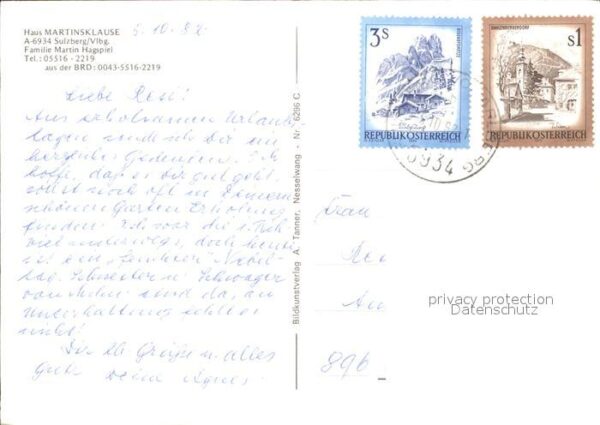 Haus MARTINSKLAUSE
A-6934 Sulzberg/Vlbg.
Familie Martin Hagspiel
Tel.: 05516 - 2219
aus der BRD: 0043-5516-2219
5.10.82
Liebe Resi!
Aus erholsamen Urlaubs
tagen sende ich Dir ein
herzliches Gedenken. Ich
hoffe, daß es Dir gut geht,
sollst noch oft in Deinem
schönen Garten Erholung
finden. Ich war die 1. Woche
viel unterwegs, doch heute
ist ein
tag. Schwester u. Schwager
von sind da, an
Unterhaltung fehlt es
nicht!
Dir lb Grüße u. alles
Gute Deine Agnes
Bildkunstverlag A. Tanner, Nesselwang - Nr. 6296 C
3s
REPUBLIK ÖSTERREICH
s1
REPUBLIK ÖSTERREICH
6934
Frau
896
privacy protection
Datenschutz